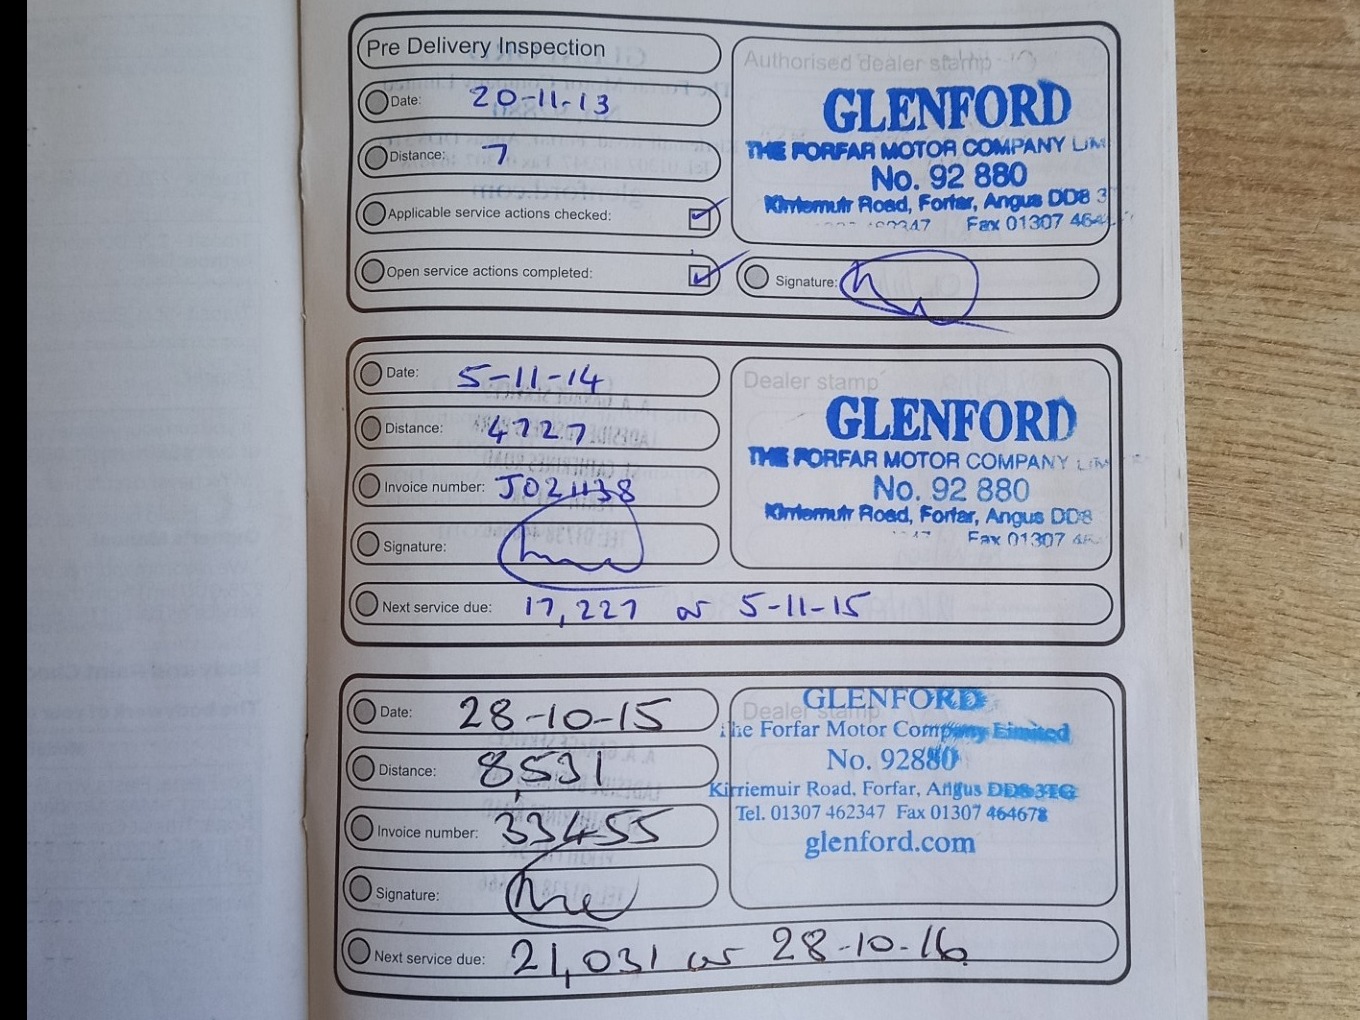 Pre Delivery Inspection
Date: 20-11-13
Distance: 7
Applicable service actions checked:
Open service actions completed:
Authorised dealer stamp
GLENFORD
THE FORFAR MOTOR COMPANY LIM
No. 92 880
Kirriemuir Road, Forfar, Angus DD8 3
462347 Fax 01307 464
Signature:
Date: 5-11-14
Distance: 4727
Invoice number:
Signature:
Next service due: 17,227 or 5-11-15
Dealer stamp
GLENFORD
THE FORFAR MOTOR COMPANY LIM
No. 92 880
Kirriemuir Road, Forfar, Angus DD8
47 Fax 01307 46
Date: 28-10-15
Distance: 8,531
Invoice number: 33455
Signature:
Next service due: 21,031 or 28-10-16
Dealer stamp
GLENFORD
The Forfar Motor Company Limited
No. 92880
Kirriemuir Road, Forfar, Angus DD8 3TG
Tel. 01307 462347 Fax 01307 464678
glenford.com